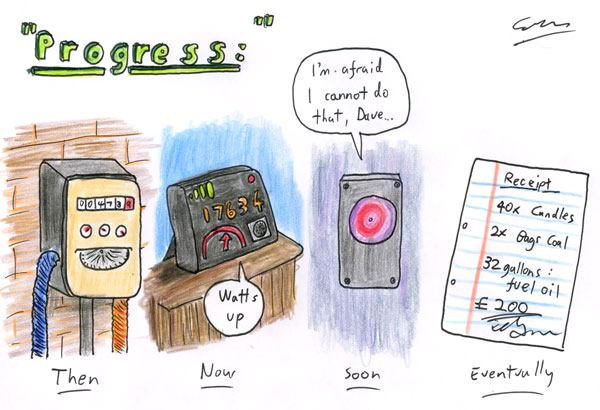 "Progress:"
I'm afraid
I cannot do
that, Dave...
00473
17634
Watts
up
Receipt
40x Candles
2x Bags Coal
32 gallons:
fuel oil
£ 200
Then
Now
Soon
Eventually